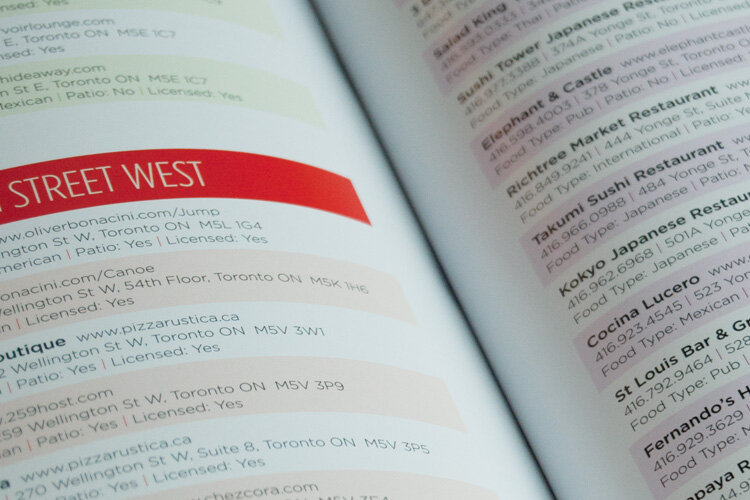 voirlounge.com
E, Toronto ON M5E 1C7
nsed: Yes
hideaway.com
n St E, Toronto ON M5E 1C7
Mexican | Patio: No | Licensed: Yes
STREET WEST
www.oliverbonacini.com/Jump
ington St W, Toronto ON M5L 1G4
merican | Patio: Yes | Licensed: Yes
onacini.com/Canoe
Wellington St W, 54th Floor, Toronto ON M5K 1H6
an | Licensed: Yes
outique www.pizzarustica.ca
2 Wellington St W, Toronto ON M5V 3W1
n | Patio: Yes | Licensed: Yes
w.259host.com
259 Wellington St W, Toronto ON M5V 3P9
an | Patio: Yes | Licensed: Yes
a www.pizzarustica.ca
270 Wellington St W, Suite 8, Toronto ON M5V 3P5
n | Patio: Yes | Licensed: Yes
chezcora.com
Salad King
Food Type: Thai | Patio: No | Licens
Sushi Tower Japanese Resta
416.977.3388 | 374A Yonge St, Toron
Food Type: Japanese | Patio: No | Licen
Elephant & Castle www.elephantcastl
416.598.4003 | 378 Yonge St, Toronto
Food Type: Pub | Patio: No | Licensed:
Richtree Market Restaurant www
416.849.9241 | 444 Yonge St, Suite
Food Type: International | Patio: Ye
Takumi Sushi Restaurant www
416.966.0988 | 484 Yonge St, T
Food Type: Japanese | Patio:
Kokyo Japanese Restaura
416.962.6968 | 501A Yonge
Food Type: Japanese | Pati
Cocina Lucero www.
416.923.4545 | 523 Yo
Food Type: Mexican
St Louis Bar & G
416.792.9464 | 528
Food Type: Pub
Fernando's H
416.929.3629
Food Type: M
apaya R